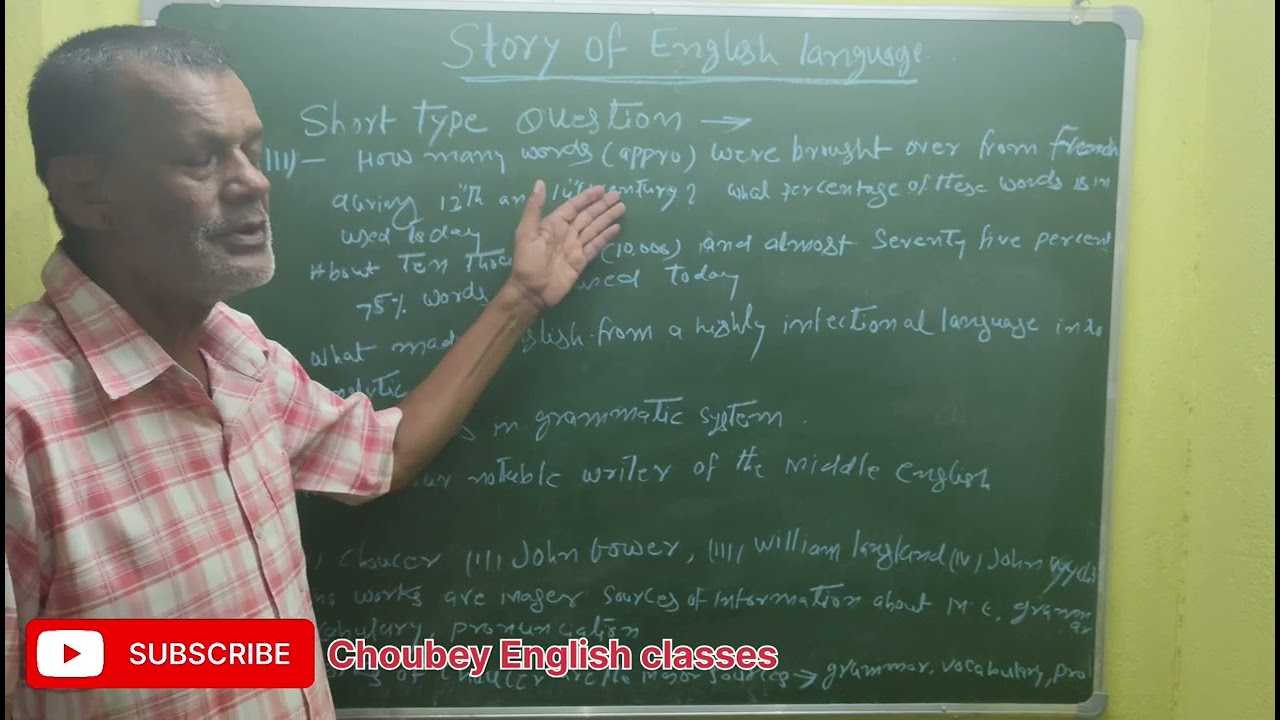 Story of English language.
Short Type Question →
III) - How many words (appro) were brought over from French
during 13th an 14th century? what percentage of these words is in
used today
About Ten (10.000) and almost seventy five percent
75% words used today
what from a highly inflectional language into
in grammatic system.
notable writer of the middle english
Choucer (II) John Gower, (III) William langland (IV) John
works are mager sources of information about M.E, gramm
ar
pronunciation
of Chaucer are the major sources → grammar, vocabulary, pro
SUBSCRIBE
Choubey English classes